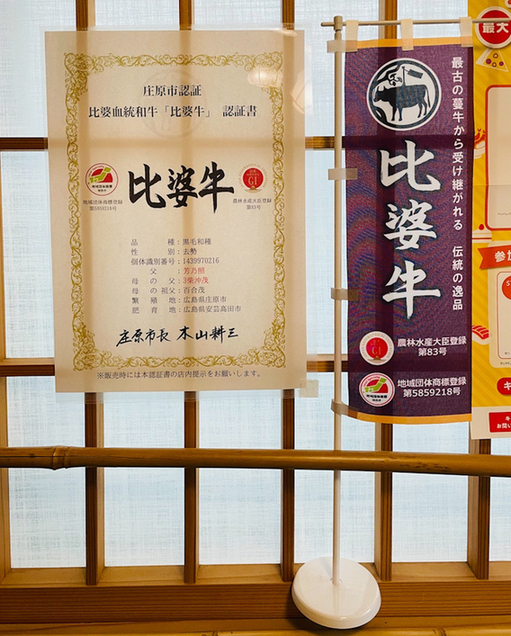 庄原市認証
比婆血統和牛「比婆牛」 認証書
比婆牛
地域団体商標登録
第5859218号
農林水産大臣登録
第83号
品種:黒毛和種
性別:去勢
個体識別番号:1439970216
父:芳乃照
母の父:3柴沖茂
母の祖父:百合茂
繁殖地:広島県庄原市
肥育地:広島県安芸高田市
庄原市長 木山耕三
※販売時には本認証書の店内提示をお願いします。
最古の蔓牛から受け継がれる 伝統の逸品
比婆牛
GI
農林水産大臣登録
第83号
地域団体商標登録
第5859218号
最大
参加